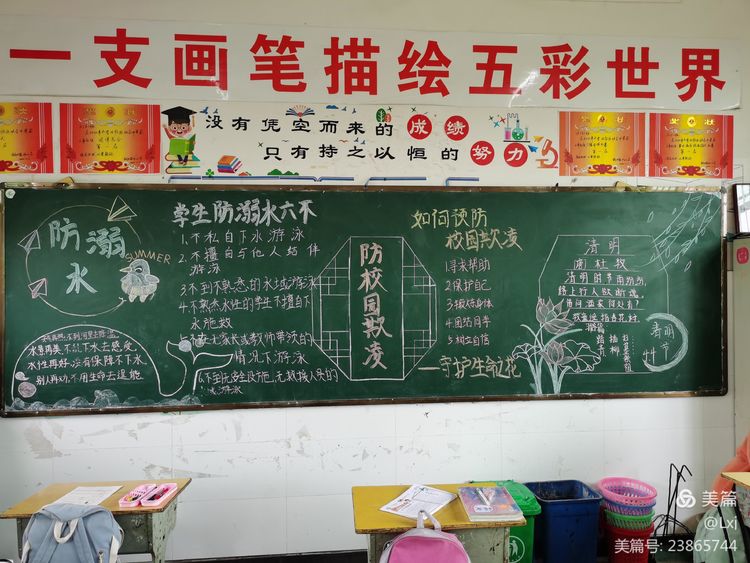 一支画笔描绘五彩世界
没有凭空而来的成绩
只有持之以恒的努力
奖状
奖状
防溺
水
SUMMER
水性再好没有保障不下水
别人再劝不用生命去逞能
学生防溺水六不
1.不私自下水游泳
2.不擅自与他人结伴
游泳
3.不到不熟悉的水域游泳
4.不熟悉水性的学生不擅自下
水施救
情况下游泳
6.不到无安全设施、无救援人员的
水域游泳
防校园欺凌
如何预防
校园欺凌
1寻求帮助
2保护自己
3锻炼身体
4团结同学
5树立自信
一守护生命之花
清明
唐杜牧
清明时节雨纷纷,
路上行人欲断魂。
借问酒家何处有?
牧童遥指杏花村。
踏青
插柳
清明
节
美篇
@Lxj
美篇号: 23865744